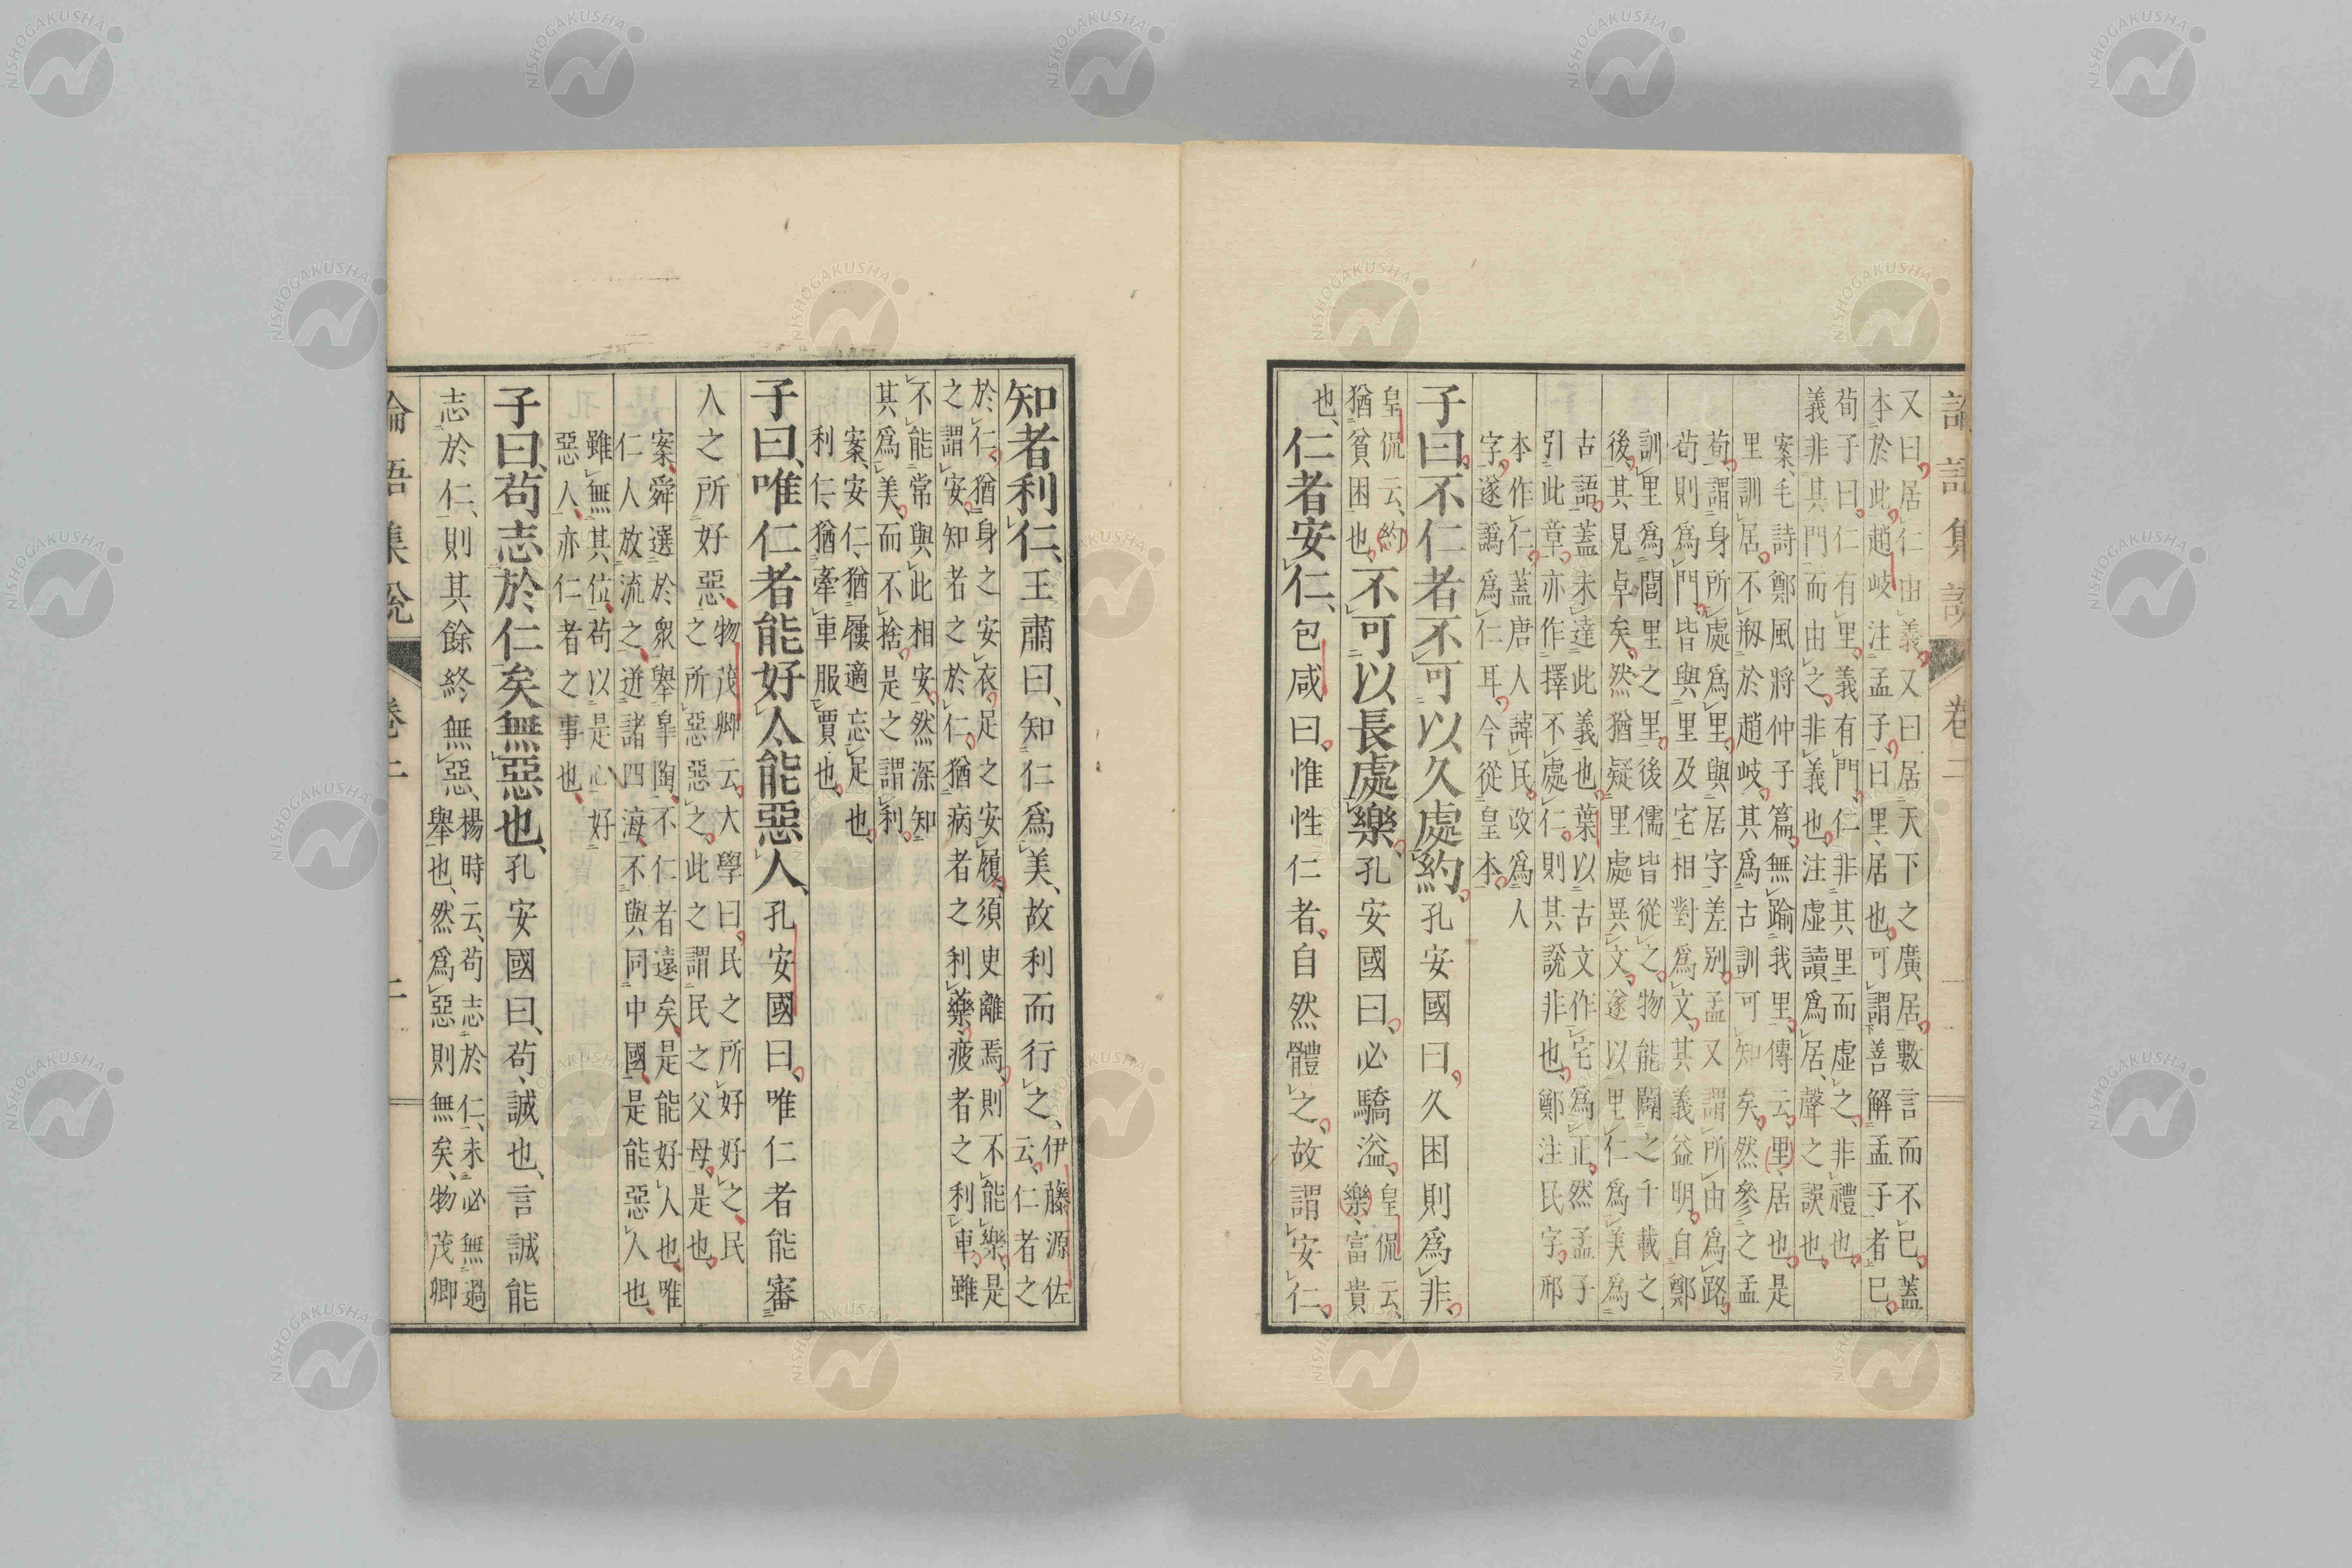 又曰居仁由義又曰居天下之廣居數言而不已蓋
本於此趙岐注孟子曰里居也可謂善解孟子者已
荀子曰仁有里義有門仁非其里而虛之非禮也
義非其門而由之非義也注虛讀爲居聲之誤也
案毛詩鄭風將仲子篇無踰我里傳云里居也是
里訓居不剏於趙岐其爲古訓可知矣然參之孟
荀謂身所處爲里與居字差別孟又謂所由爲路
荀則爲門皆與里及宅相對爲文其義益明自鄭
訓里爲閭里之里後儒皆從之物能闢之千載之
後其見卓矣然猶疑里處異文遂以里仁爲美爲
古語蓋未達此義也葉以古文作宅爲正然孟子
引此章亦作擇不處仁則其說非也鄭注民字邢
本作仁蓋唐人諱民改爲人
字遂譌爲仁耳今從皇本
子曰不仁者不可以久處約孔安國曰久困則爲非
皇侃云約
猶貧困也不可以長處樂孔安國曰必驕溢皇侃云
樂富貴
也仁者安仁包咸曰惟性仁者自然體之故謂安仁
知者利仁王肅曰知仁爲美故利而行之伊藤源佐
云仁者之
於仁猶身之安衣足之安履須史離焉則不能樂是
之謂安知者之於仁猶病者之利藥疲者之利車雖
不能常與此相安然深知
其爲美而不捨是之謂利
案安仁猶屨適忘足也
利仁猶牽車服賈也
子曰唯仁者能好人能惡人孔安國曰唯仁者能審
人之所好惡物茂卿云大學曰民之所好好之民
之所惡惡之此之謂民之父母是也
案舜選於衆舉皐陶不仁者遠矣是能好人也唯
仁人放流之迸諸四海不與同中國是能惡人也
雖無其位苟以是心好
惡人亦仁者之事也
子曰苟志於仁矣無惡也孔安國曰苟誠也言誠能
志於仁則其餘終無惡楊時云苟志於仁未必無過
舉也然爲惡則無矣物茂卿